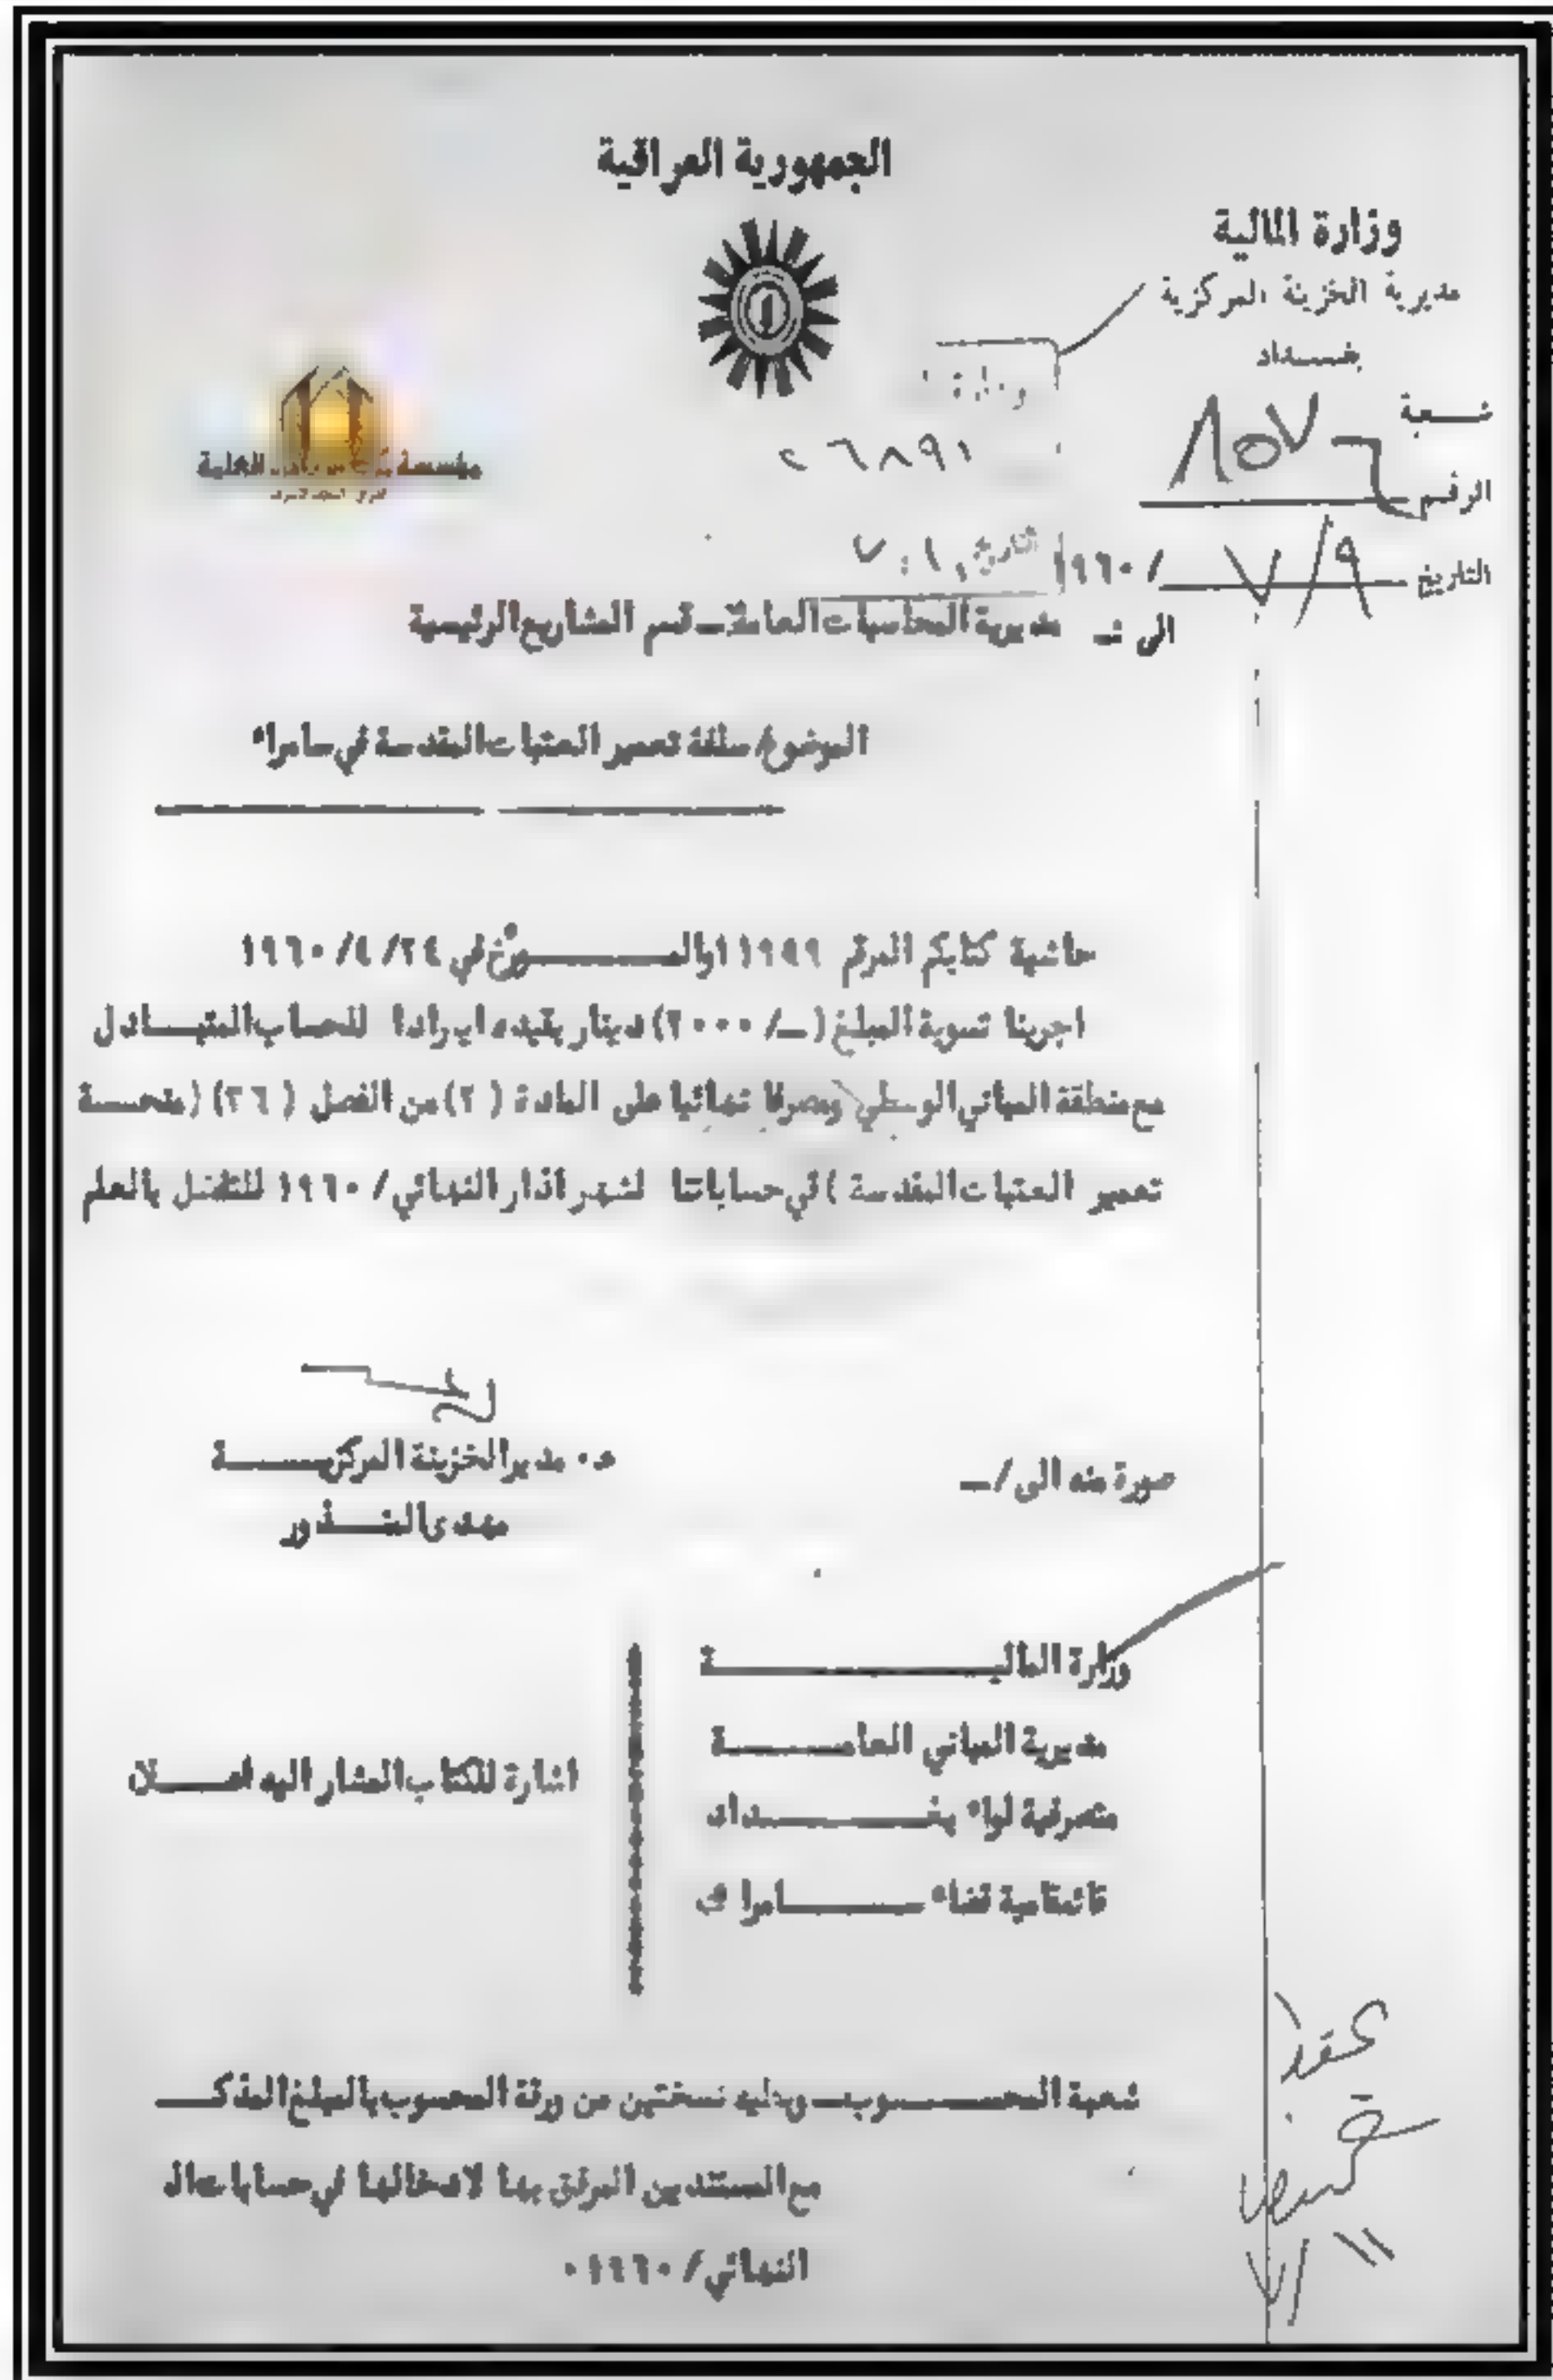 الجمهورية العراقية
وزارة المالية
مديرية الخزينة المركزية
بغـــداد
شـــعبة
الرقم ٨٥٧
٢٦٨٩١
التاريخ ٧/٩ /١٩٦٠
التاريخ
الى :ـ مديرية المحاسبات العامة ـ قسم المشاريع الرئيسية
الموضوع/ سلفة تعمير العتبات المقدسة في سامراء
حاشية كتابكم المرقم ١١٩٩٩ والمـــــؤرخ في ٢٤/ ٤/ ١٩٦٠
اجرينا تسوية المبلغ (ـ/ ٢٠٠٠) دينار بقيده ايرادا للحساب المتبـــادل
مع منطقة المباني الوسطى ومصرفا نهائيا على المادة (٢) من الفصل (٢٦) (منحـــة
تعمير العتبات المقدسة ) في حساباتنا لشهر اذار النهائي/ ١٩٦٠ للتفضل بالعلم
ع٠ مدير الخزينة المركزيـــــة
مهدى
صورة منه الى /ـ
وزارة الماليـــــــــــة
مديرية المباني العامـــــة
متصرفية لواء بغـــــــداد
قائمقامية قضاء ســـــامراء
اشارة للكتاب المشار اليه اعـــلان
شعبة المحســــوب ـ وبطيه نسختين من ورقة المحسوب بالمبلغ المذكـــ
مع المستندين المرفق بها لادخالها في حسابات
النهائي/ ١٩٦٠ ٠